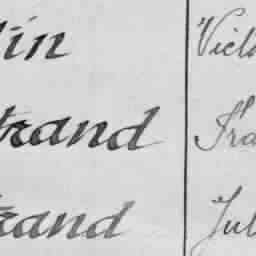 lin Vict
trand Fra
trand Jul